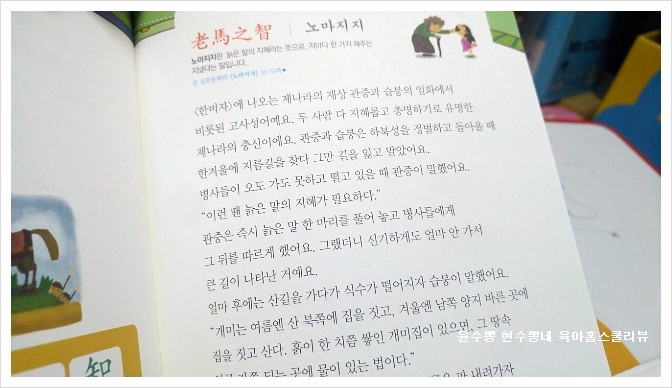 老馬之智 | 노마지지
노마지지란 늙은 말의 지혜라는 뜻으로, 저마다 한 가지 재주는
지녔다는 말입니다.
〈노마지지〉
〈한비자〉에 나오는 제나라의 재상 관중과 습붕의 일화에서
비롯된 고사성어예요. 두 사람 다 지혜롭고 총명하기로 유명한
제나라의 충신이에요. 관중과 습붕은 하북성을 정벌하고 돌아올 때
한겨울에 지름길을 찾다 그만 길을 잃고 말았어요.
병사들이 오도 가도 못하고 떨고 있을 때 관중이 말했어요.
"이런 땐 늙은 말의 지혜가 필요하다."
관중은 즉시 늙은 말 한 마리를 풀어 놓고 병사들에게
그 뒤를 따르게 했어요. 그랬더니 신기하게도 얼마 안 가서
큰 길이 나타난 거예요.
얼마 후에는 산길을 가다가 식수가 떨어지자 습붕이 말했어요.
"개미는 여름엔 산 북쪽에 집을 짓고, 겨울엔 남쪽 양지 바른 곳에
집을 짓고 산다. 흙이 한 치쯤 쌓인 개미집이 있으면, 그 땅속
되는 곳에 물이 있는 법이다."
파 내려가자
智
윤수뽕 현수뽕네 육아홈스쿨리뷰